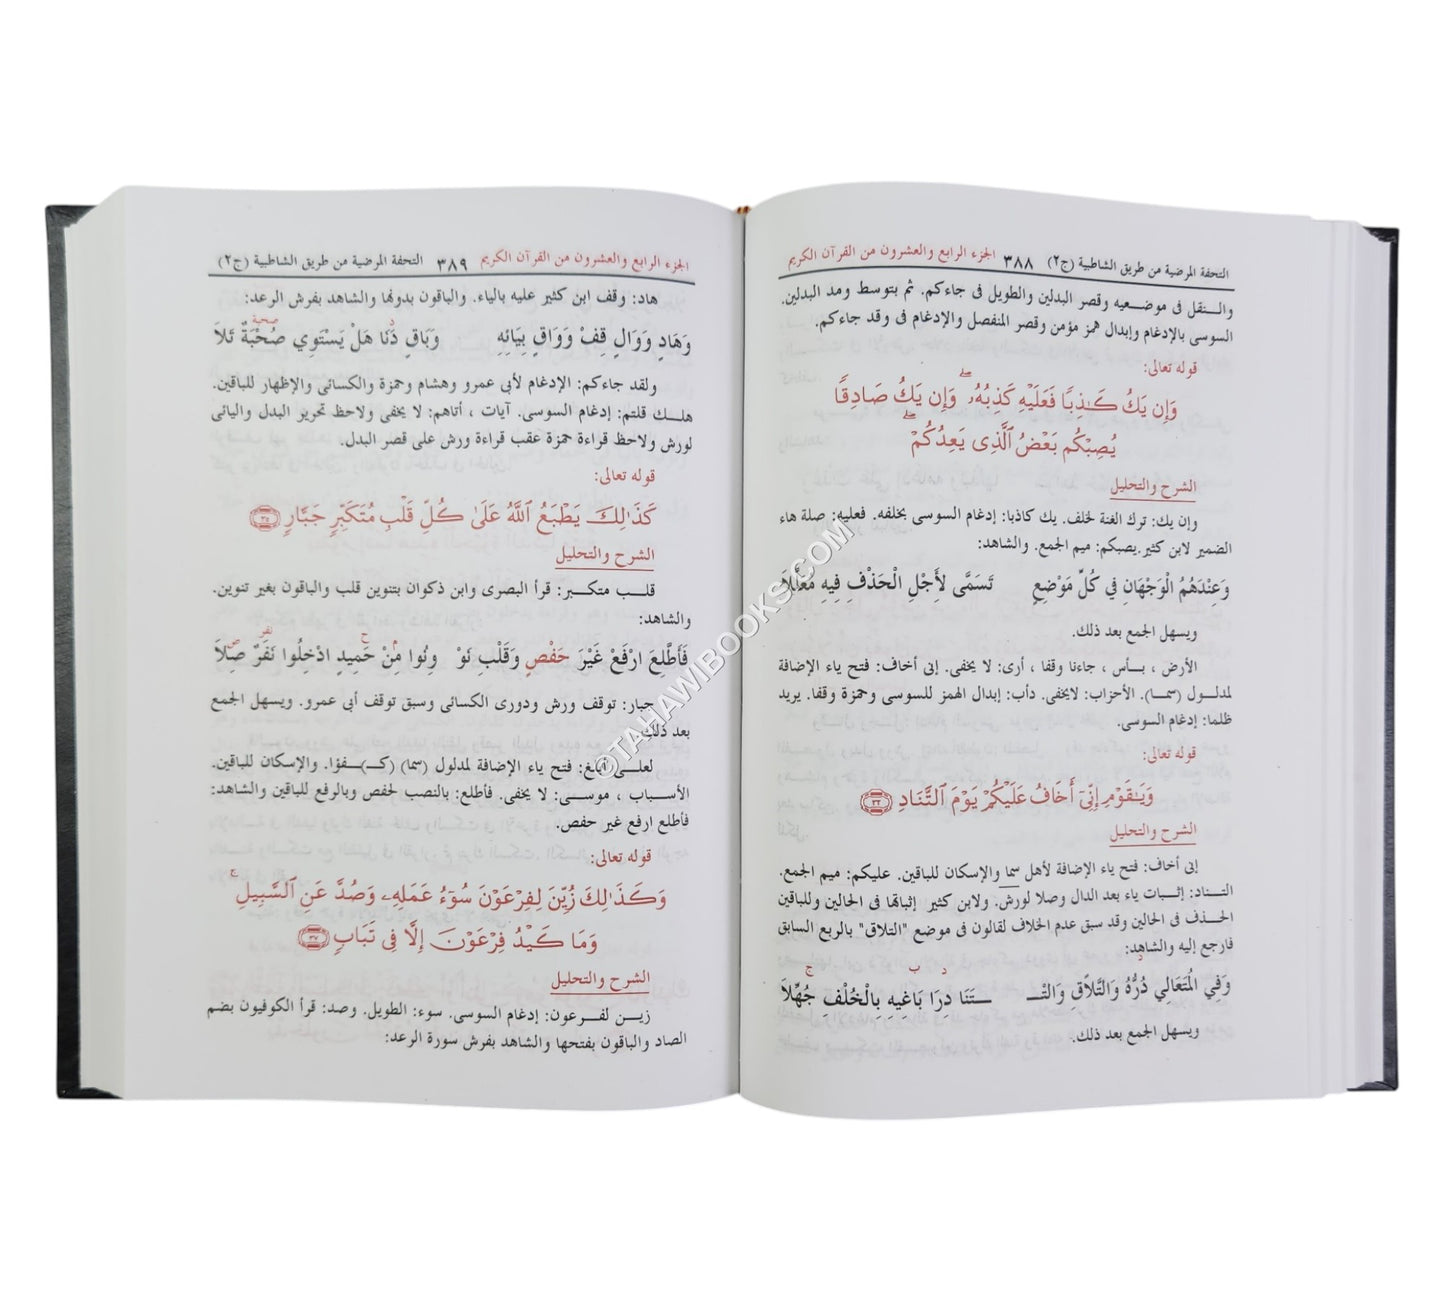 التحفة المرضية من طريق الشاطبية (ج٢) ٣٨٨ الجزء الرابع والعشرون من القرآن الكريم
والـــنقل فى موضـــعيه وقصر البدلين والطويل فى جاءكم. ثم بتوسط ومد البدلين.
السوسى بالإدغام وإبدال همز مؤمن وقصر المنفصل والإدغام فى وقد جاءكم.
قوله تعالى:
وَإِن يَكُ كَـٰذِبًا فَعَلَيْهِ كَذِبُهُۥ ۖ وَإِن يَكُ صَادِقًا
يُصِبْكُم بَعْضُ ٱلَّذِى يَعِدُكُمْ ۖ
الشرح والتحليل
وإن يك: ترك الغنة لخلف. يك كاذبا: إدغام السوسى بخلفه. فعليه: صلة هاء
الضمير لابن كثير.يصبكم: ميم الجمع. والشاهد:
وَعِنْدَهُمُ الْوَجْهَانِ فِي كُلِّ مَوْضِعٍ تَسَمَّى لأَجْلِ الْحَذْفِ فِيهِ مُعَلَّلاَ
ويسهل الجمع بعد ذلك.
الأرض ، بـــأس ، جاءنا وقفا ، أرى: لا يخفى. إنى أخاف: فتح ياء الإضافة
لمدلـــول (سمـــا). الأحزاب: لايخفى. دأب: إبدال الهمز للسوسى وحمزة وقفا. يريد
ظلما: إدغام السوسى.
قوله تعالى:
وَيَـٰقَوْمِ إِنِّىٓ أَخَافُ عَلَيْكُمْ يَوْمَ ٱلتَّنَادِ ٣٢
الشرح والتحليل
إنى أخاف: فتح ياء الإضافة لأهل سما والإسكان للباقين. عليكم: ميم الجمع.
التـــناد: إثـــبات ياء بعد الدال وصلا لورش. ولابن كثير إثباتها فى الحالين وللباقين
الحـــذف فى الحالين وقد سبق عدم الخلاف لقالون فى موضع "التلاق" بالربع السابق
فارجع إليه والشاهد:
د ب ج
وَفِي الْمُتَعَالِي دُرُّهُ وَالتَّلاَقِ وَالتْـــ ـــتَنَا دِرَا بَاغِيهِ بِالْخُلْفِ جُهَّلاَ
ويسهل الجمع بعد ذلك.
الجزء الرابع والعشرون من القرآن الكريم ٣٨٩ التحفة المرضية من طريق الشاطبية (ج٢)
هاد: وقف ابن كثير عليه بالياء. والباقون بدونها والشاهد بفرش الرعد:
صحبة
وَهَادٍ وَوَالٍ قِفْ وَوَاقٍ بِيَائِهِ وَبَاقٍ دَنَا هَلْ يَسْتَوِي صُحْبَةٌ تَلاَ
ولقد جاءكم: الإدغام لأبى عمرو وهشام وحمزة والكسائى والإظهار للباقين.
هلـــك قلتم: إدغام السوسى. آيات ، أتاهم: لا يخفى ولاحظ تحرير البدل واليائى
لورش ولاحظ قراءة حمزة عقب قراءة ورش على قصر البدل.
قوله تعالى:
كَذَٰلِكَ يَطْبَعُ ٱللَّهُ عَلَىٰ كُلِّ قَلْبِ مُتَكَبِّرٍ جَبَّارٍ ٣٥
الشرح والتحليل
قلـــب متكـــبر: قرأ البصرى وابن ذكوان بتنوين قلب والباقون بغير تنوين.
والشاهد:
ح نفر ص
فَأَطَّلِعَ ارْفَعْ غَيْرَ حَفْصٍ وَقَلْبِ نَوْ وِنُوا مِنْ حَمِيدٍ ادْخِلُوا نَفَرٌ صِلاَ
جبار: توقف ورش ودورى الكسائى وسبق توقف أبى عمرو. ويسهل الجمع
بعد ذلك.
لعلـــى أبلغ: فتح ياء الإضافة لمدلول (سما) (كـــ)ـــفؤا. والإسكان للباقين.
الأســـباب ، موســـى: لا يخفى. فأطلع: بالنصب لحفص وبالرفع للباقين والشاهد:
فأطلع ارفع غير حفص.
قوله تعالى:
وَكَذَٰلِكَ زُيِّنَ لِفِرْعَوْنَ سُوٓءُ عَمَلِهِۦ وَصُدَّ عَنِ ٱلسَّبِيلِ ۚ
وَمَا كَيْدُ فِرْعَوْنَ إِلَّا فِى تَبَابٍ ٣٧
الشرح والتحليل
زيـــن لفـــرعون: إدغام السوسى. سوء: الطويل. وصد: قرأ الكوفيون بضم
الصاد والباقون بفتحها والشاهد بفرش سورة الرعد:
©TAHAWIBOOKS.COM